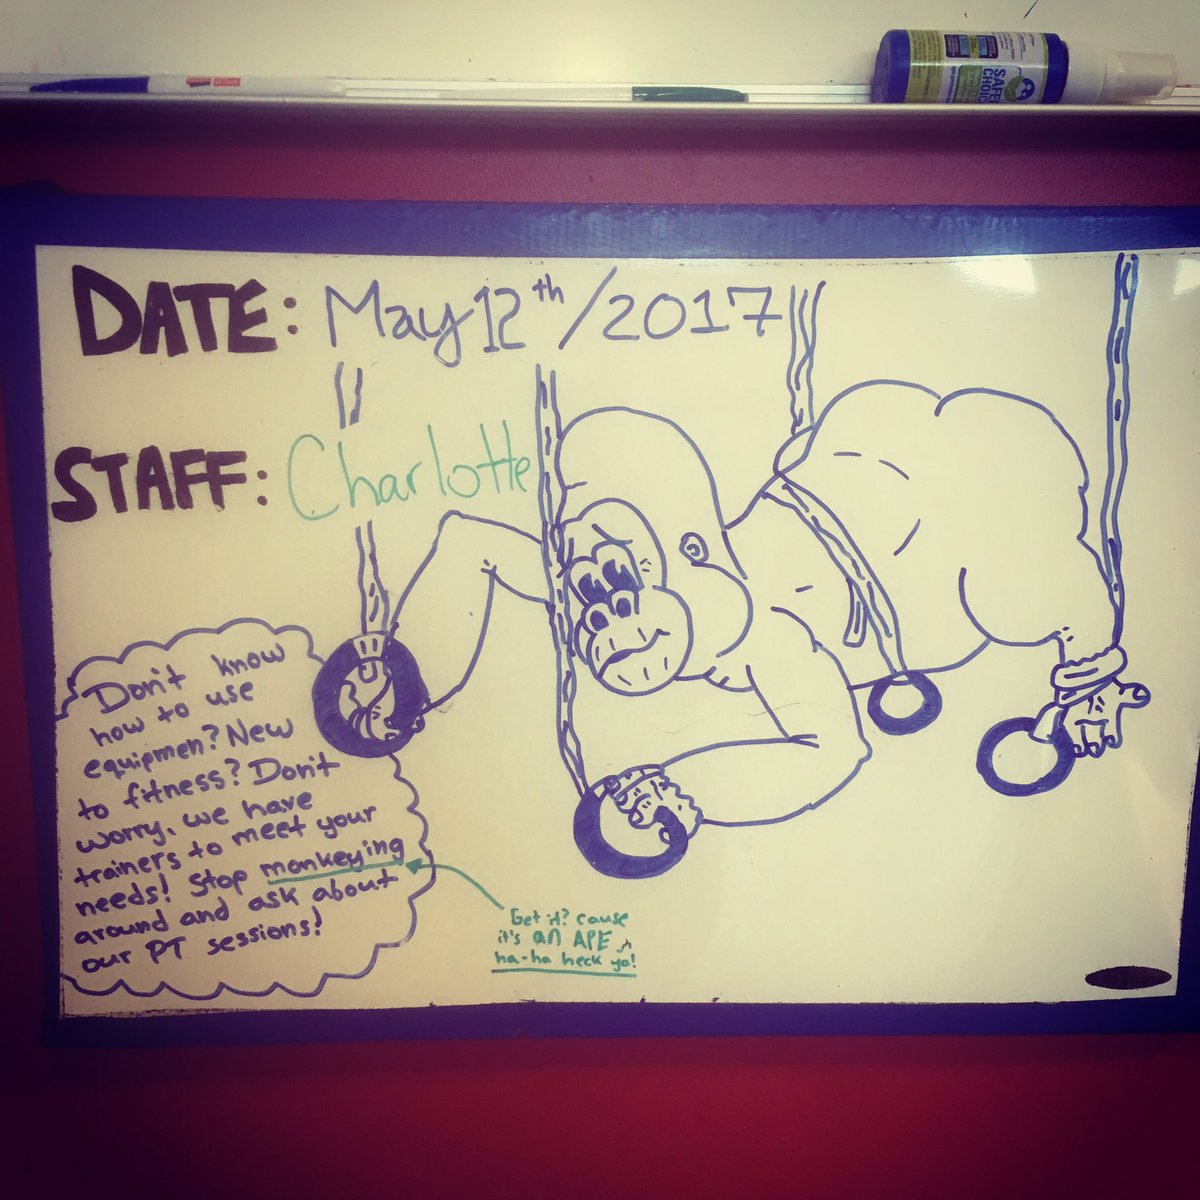 SAFER
CHOICE
DATE: May 12th/2017
STAFF: Charlotte
Don't know
how to use
equipmen? New
to fitness? Don't
worry, we have
trainers to meet your
needs! Stop monkeying
around and ask about
our PT sessions!
Get it? cause
it's an APE
ha-ha heck ya!